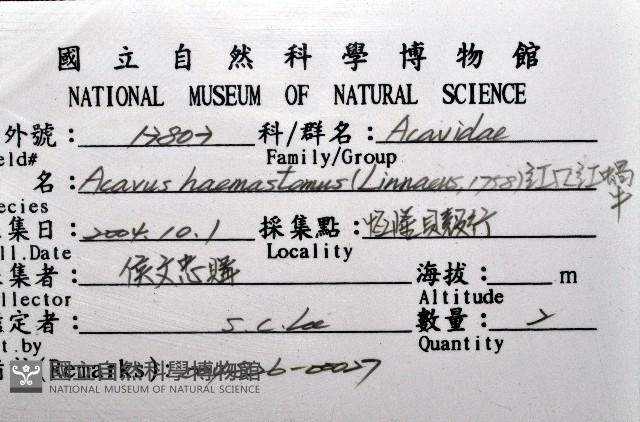 國立自然科學博物館
NATIONAL MUSEUM OF NATURAL SCIENCE
外號： 17807 科/群名： Acavidae
eld# Family/Group
名： Acavus haemastomus (Linnaeus, 1758) 紅口紅蝸牛
ecies
集日： 2004.10.1 採集點： 恒曦貝殼行
ll.Date Locality
集者： 侯文忠購 海拔： m
llector Altitude
定者： S.C.Lee 數量： 2
t.by Quantity
(Remarks):
國立自然科學博物館
NATIONAL MUSEUM OF NATURAL SCIENCE